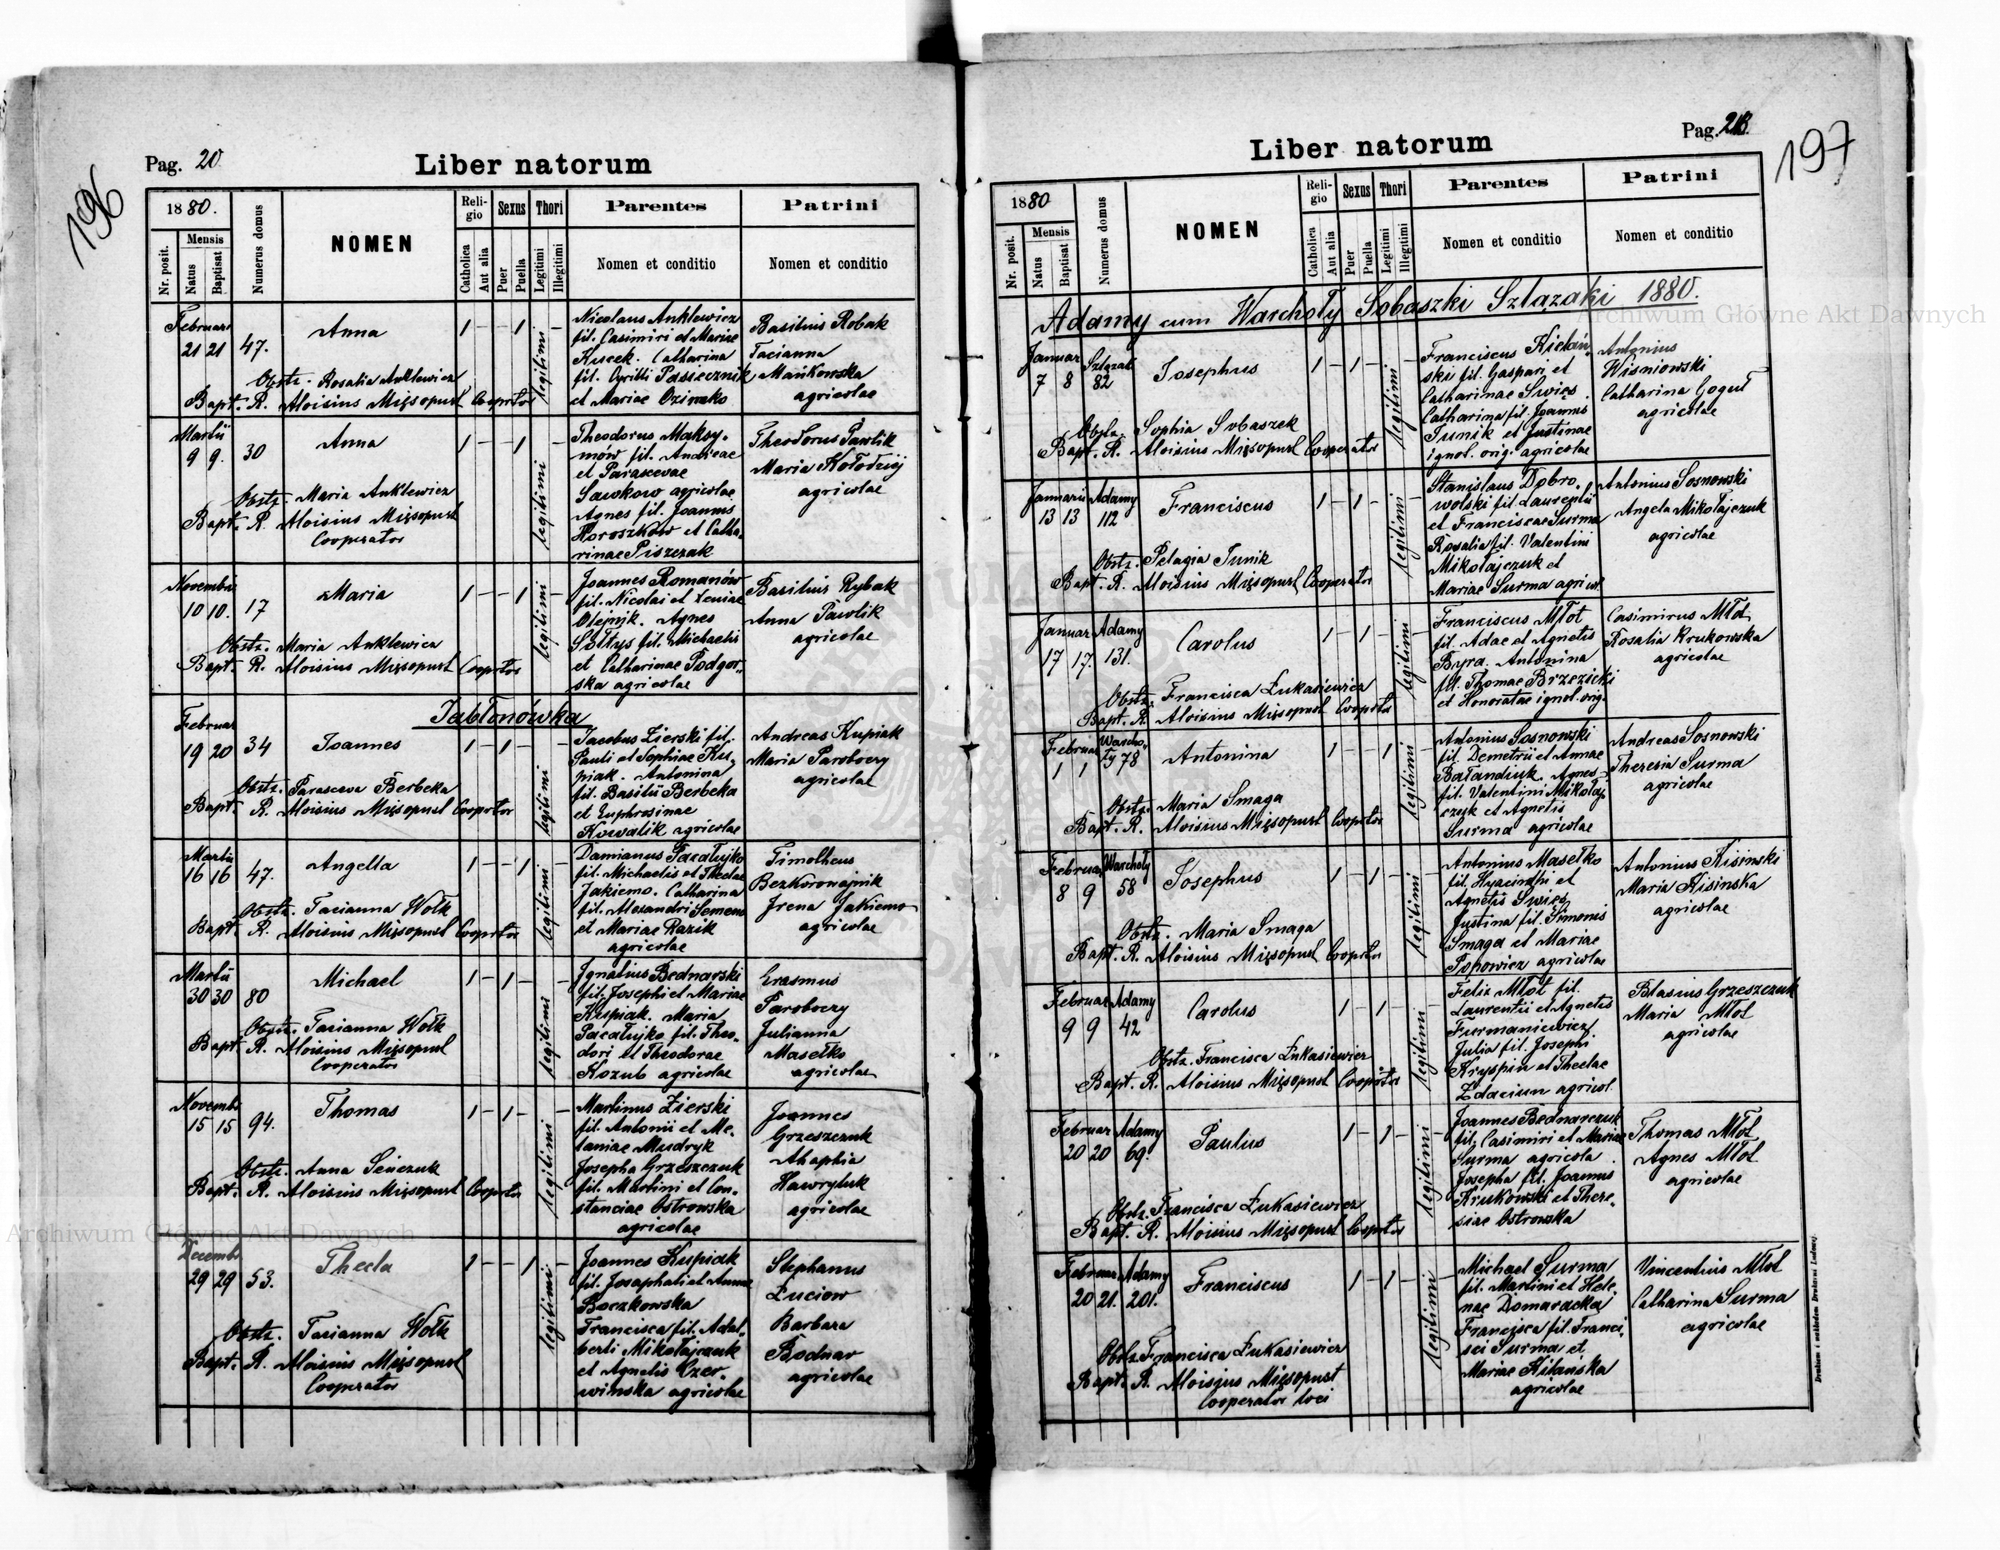 196
Pag. 20
Liber natorum
1880.
Nr. posit.
Mensis
Natus
Baptisat
Numerus domus
NOMEN
Religio
Catholica
Aut alia
Sexus
Puer
Puella
Thori
Legitimi
Illegitimi
Parentes
Nomen et conditio
Patrini
Nomen et conditio
Februar
21 21 47.
Anna
1 - - 1 -
legitimi
Nicolaus Anklewicz
fil. Casimiri et Mariae
Kucek. Catharina
fil. Cyrilli Pasiecznik
et Mariae
Basilius Robak
Tacianna
Mańkowska
agricolae
Obstz. Rosalia Anklewicz
Bapt. R. Aloisius Mięsopust Cooprtor
Martii
9 9. 30
Anna
1 - - 1 -
legitimi
Theodorus Maksy-
mow fil. Andreae
et Parascevae
Sawkow agricolae
Agnes fil. Joannis
Horoszkow et Catha-
rinae Piszczak
Theodorus Pawlik
Maria Kołodziej
agricolae
Obstz. Maria Anklewicz
Bapt. R. Aloisius Mięsopust
Cooperator
Novembris
10 10. 17
Maria
1 - - 1 -
legitimi
Joannes Romanów
fil. Nicolai et Xeniae
Olejnik. Agnes
Sołtys fil. Michaelis
et Catharinae Podgor-
ska agricolae
Basilius Rybak
Anna Pawlik
agricolae
Obstz. Maria Anklewicz
Bapt. R. Aloisius Mięsopust Cooprtor
Jabłonówka
Februar
19 20 34
Joannes
1 - 1 - -
legitimi
Jacobus Zierski fil.
Pauli et Sophiae Ku-
piak. Antonina
fil. Basilii Berbeka
et Euphrosinae
Kowalik agricolae
Andreas Kupiak
Maria Paroboczy
agricolae
Obstz. Parasceva Berbeka
Bapt. R. Aloisius Mięsopust Cooprtor
Martii
16 16 47.
Angella
1 - - 1 -
legitimi
Damianus Pacałujko
fil. Michaelis et Theclae
Jakiemo. Catharina
fil. Alexandri Semens
et Mariae Kazik
agricolae
Timotheus
Bezkorowajnik
Irena Jakiemo
agricolae
Obstz. Tacianna Wołk
Bapt. R. Aloisius Mięsopust Cooprtor
Martii
30 30 80
Michael
1 - 1 - -
legitimi
Ignatius Bednarski
fil. Josephi et Mariae
Kupiak. Maria
Pacałujko fil. Theo-
dori et Theodorae
Kozub agricolae
Erasmus
Paroboczy
Julianna
Masełko
agricolae
Obstz. Tacianna Wołk
Bapt. R. Aloisius Mięsopust
Cooperator
Novembr
15 15 94.
Thomas
1 - 1 - -
legitimi
Martinus Zierski
fil. Antonii et Me-
laniae Mudryk
Josepha Grzeszczuk
fil. Martini et Con-
stanciae Ostrowska
agricolae
Joannes
Grzeszczuk
Ahaphia
Hawryluk
agricolae
Obstz. Anna Senczuk
Bapt. R. Aloisius Mięsopust Cooprtor
Decembr
29 29 53.
Thecla
1 - - 1 -
legitimi
Joannes Kupiak
fil. Josaphati et Annae
Boczkowska
Francisca fil. Adal-
berti Mikołajczuk
et Agnetis Czer-
winska agricolae
Stephanus
Łuciow
Barbara
Bodnar
agricolae
Obstz. Tacianna Wołk
Bapt. R. Aloisius Mięsopust
Cooperator
Archiwum Główne Akt Dawnych
Liber natorum
Pag.
197
1880
Nr. posit.
Mensis
Natus
Baptisat
Numerus domus
NOMEN
Religio
Catholica
Aut alia
Sexus
Puer
Puella
Thori
Legitimi
Illegitimi
Parentes
Nomen et conditio
Patrini
Nomen et conditio
Adamy cum Warchoły Sobaszki Szlązaki 1880.
Archiwum Główne Akt Dawnych
Januar
7 8 Szlązaki 82
Josephus
1 - 1 - -
legitimi
Franciscus Kielań-
ski fil. Gaspari et
Catharinae Swies.
Catharina fil. Joannis
Tunik et Justinae
ignot. orig. agricolae
Antonius
Wisniowski
Catharina Goguł
agricolae
Obstz. Sophia Sobaszek
Bapt. R. Aloisius Mięsopust Cooperator
Januarii
13 13 Adamy 112
Franciscus
1 - 1 - -
legitimi
Stanislaus Dobro-
wolski fil. Laurentii
et Franciscae Surma
Rosalia fil. Valentini
Mikołajczuk et
Mariae Surma agricol.
Antonius Sosnowski
Angela Mikołajczuk
agricolae
Obstz. Pelagia Tunik
Bapt. R. Aloisius Mięsopust Cooperator
Januar
17 17. Adamy 131.
Carolus
1 - 1 - -
legitimi
Franciscus Młot
fil. Adae et Agnetis
Byra. Antonina
fil. Thomae Brzezicki
et Honoratae ignot. orig.
Casimirus Młot
Rosalia Krukowska
agricolae
Obstz. Francisca Łukasiewicz
Bapt. R. Aloisius Mięsopust Cooprtor
Februar
1 1 Warchoły 78
Antonina
1 - - 1 -
legitimi
Antonius Sosnowski
fil. Demetrii et Annae
Bałanduk. Agnes
fil. Valentini Mikołaj-
czuk et Agnetis
Surma agricolae
Andreas Sosnowski
Theresia Surma
agricolae
Obstz. Maria Smaga
Bapt. R. Aloisius Mięsopust Cooprtor
Februar
8 9 Warchoły 58
Josephus
1 - 1 - -
legitimi
Antonius Masełko
fil. Hyacinthi et
Agnetis Swies
Justina fil. Simonis
Smaga et Mariae
Popowicz agricolae
Antonius Kisinski
Maria Kisinska
agricolae
Obstz. Maria Smaga
Bapt. R. Aloisius Mięsopust Cooprtor
Februar
9 9 Adamy 42
Carolus
1 - 1 - -
legitimi
Felix Młot fil.
Laurentii et Agnetis
Furmaniewicz
Julia fil. Josephi
Kryspin et Theclae
Zdaciun agricol.
Blasius Grzeszczuk
Maria Młot
agricolae
Obstz. Francisca Łukasiewicz
Bapt. R. Aloisius Mięsopust Cooprtor
Februar
20 20 Adamy 69.
Paulus
1 - 1 - -
legitimi
Joannes Bednarczuk
fil. Casimiri et Mariae
Surma agricola
Josepha fil. Joannis
Krukowski et There-
siae Ostrowska
Thomas Młot
Agnes Młot
agricolae
Obstz. Francisca Łukasiewicz
Bapt. R. Aloisius Mięsopust Cooprtor
Februar
20 21. Adamy 201.
Franciscus
1 - 1 - -
legitimi
Michael Surma
fil. Martini et Hele-
nae Domaracka
Francisca fil. Franci-
sci Surma et
Mariae Kilanska
agricolae
Vincentius Młot
Catharina Surma
agricolae
Obstz. Francisca Łukasiewicz
Bapt. R. Aloisius Mięsopust
Cooperator loci
Drukiem i nakładem Drukarni Ludowej.